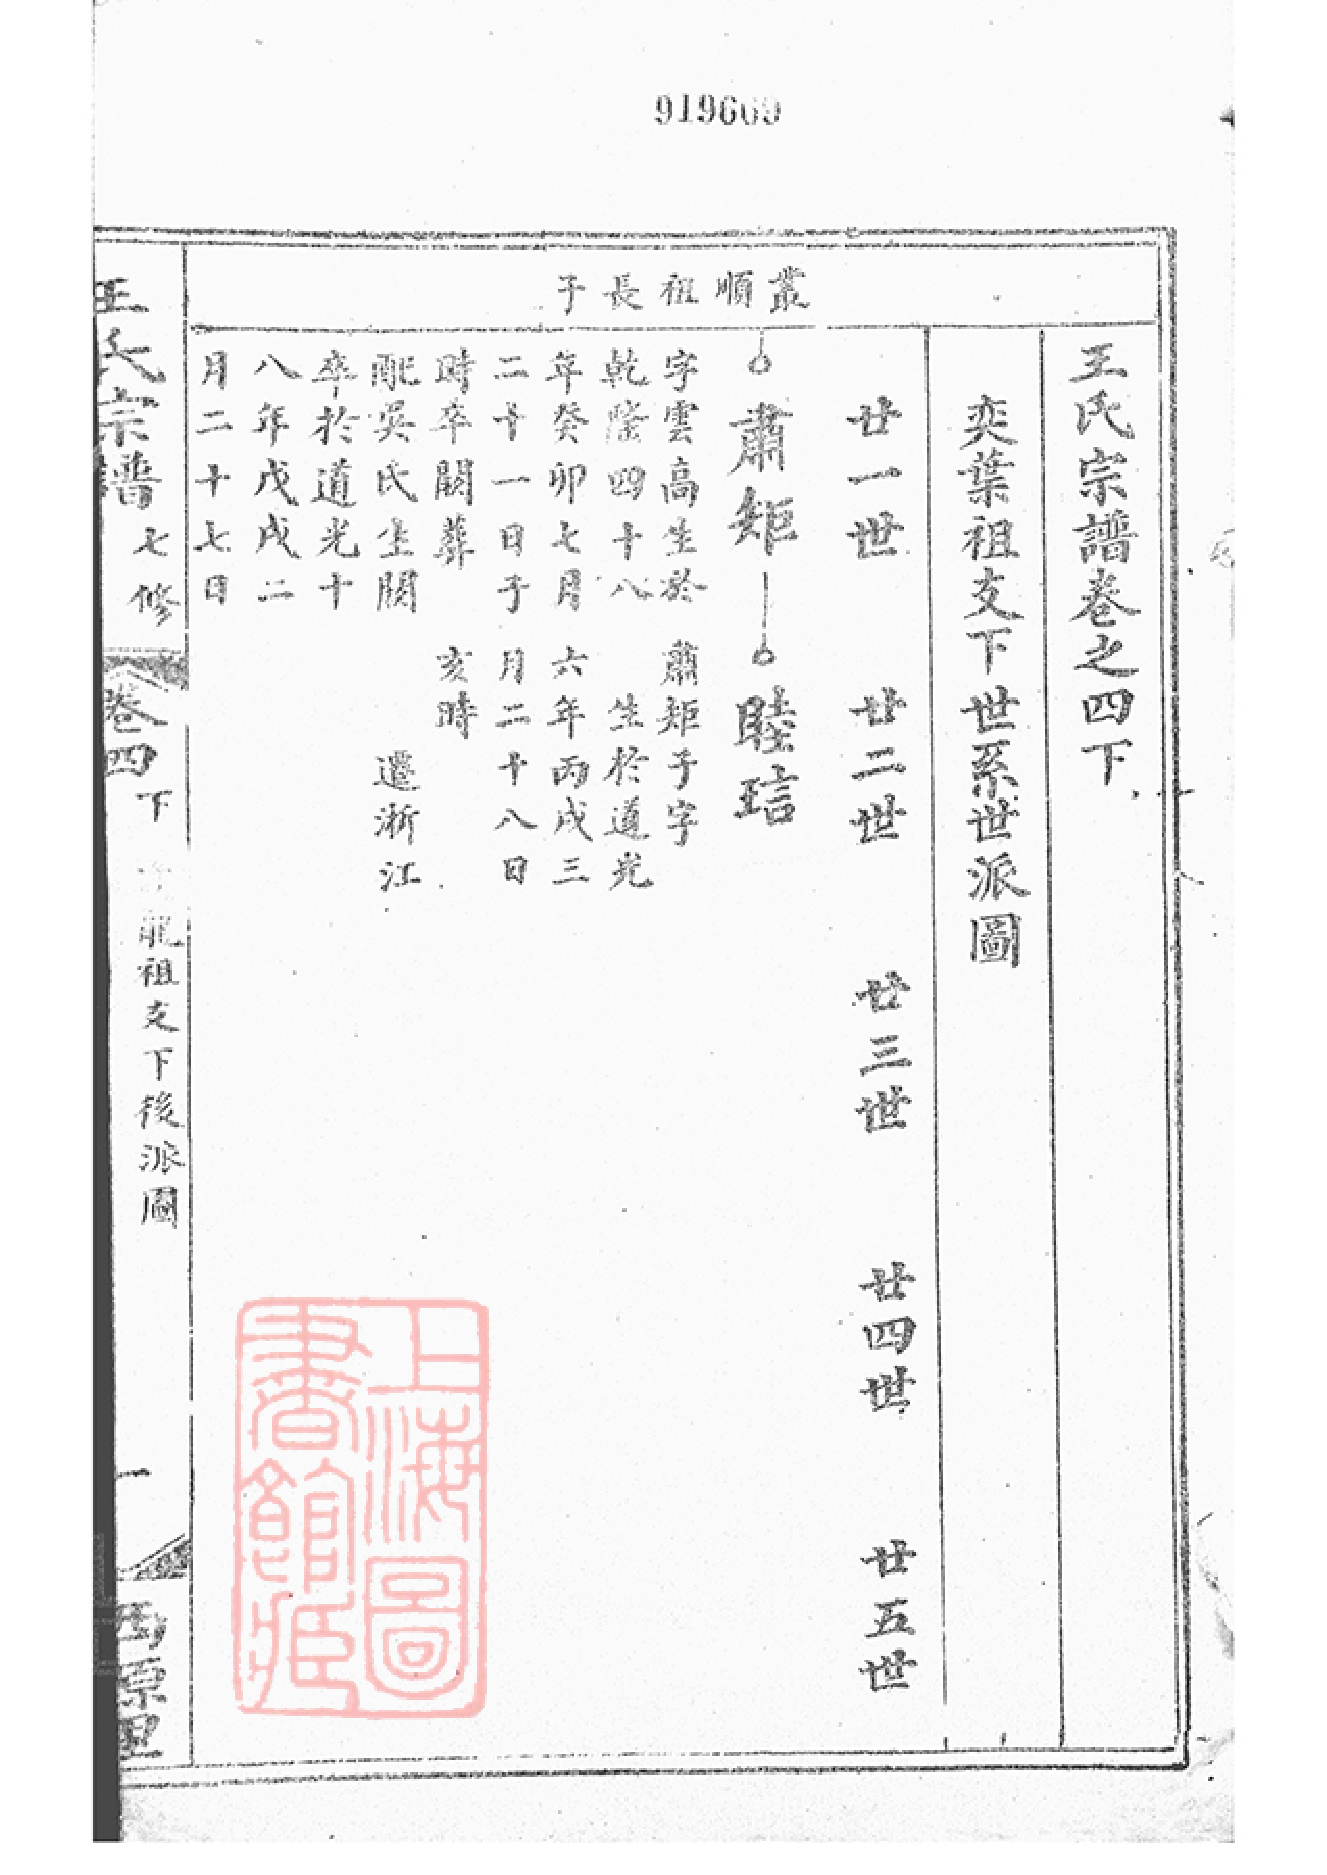 919669
王氏宗譜卷之四下
奕葉祖支下世系世派圖
廿一世
廿二世
廿三世
廿四世
廿五世
叢順祖長子
肅矩
字雲高生於
乾隆四十八
年癸卯七月
二十一日子
時卒闕葬
配吳氏生闕
卒於道光十
八年戊戌二
月二十七日
睦琂
肅矩子字
生於道光
六年丙戌三
月二十八日
亥時
遷浙江
王氏宗譜
七修
卷四
下
祖支下後派圖
一
原里
上海圖
書館藏